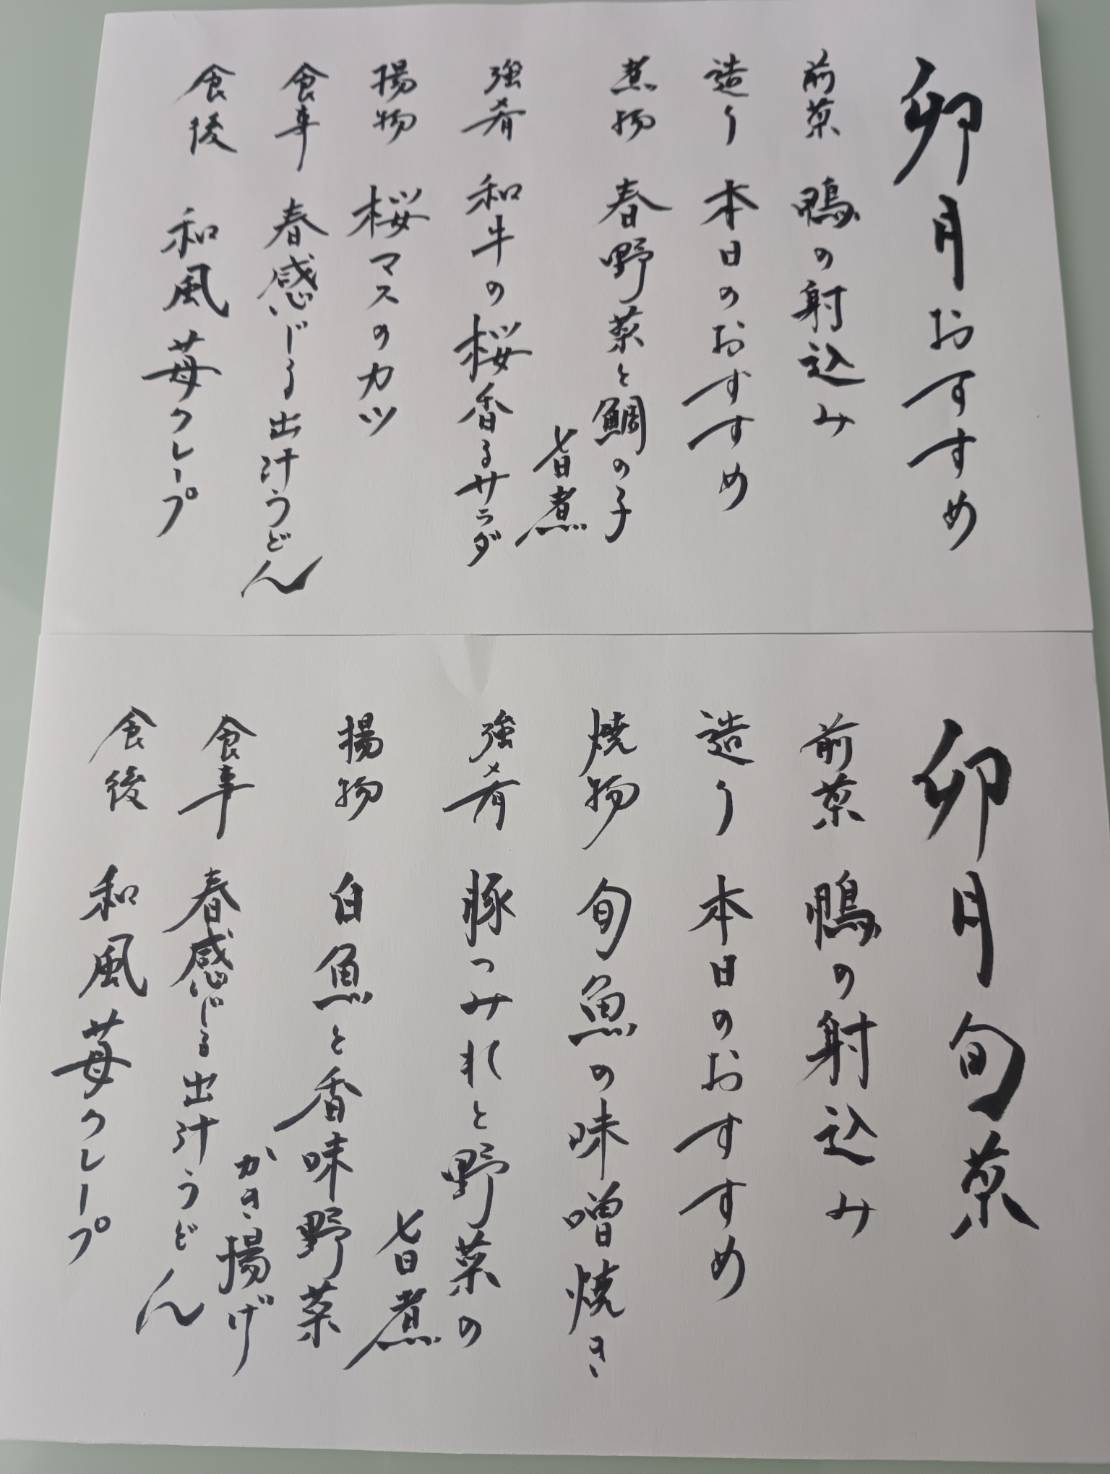 卯月おすすめ
前菜 鴨の射込み
造り 本日のおすすめ
煮物 春野菜と鯛の子
旨煮
強肴 和牛の桜香るサラダ
揚物 桜マスのカツ
食事 春感じる出汁うどん
食後 和風苺クレープ
卯月旬菜
前菜 鴨の射込み
造り 本日のおすすめ
焼物 旬魚の味噌焼き
強肴 豚つみれと野菜の
旨煮
揚物 白魚と香味野菜
かき揚げ
食事 春感じる出汁うどん
食後 和風苺クレープ